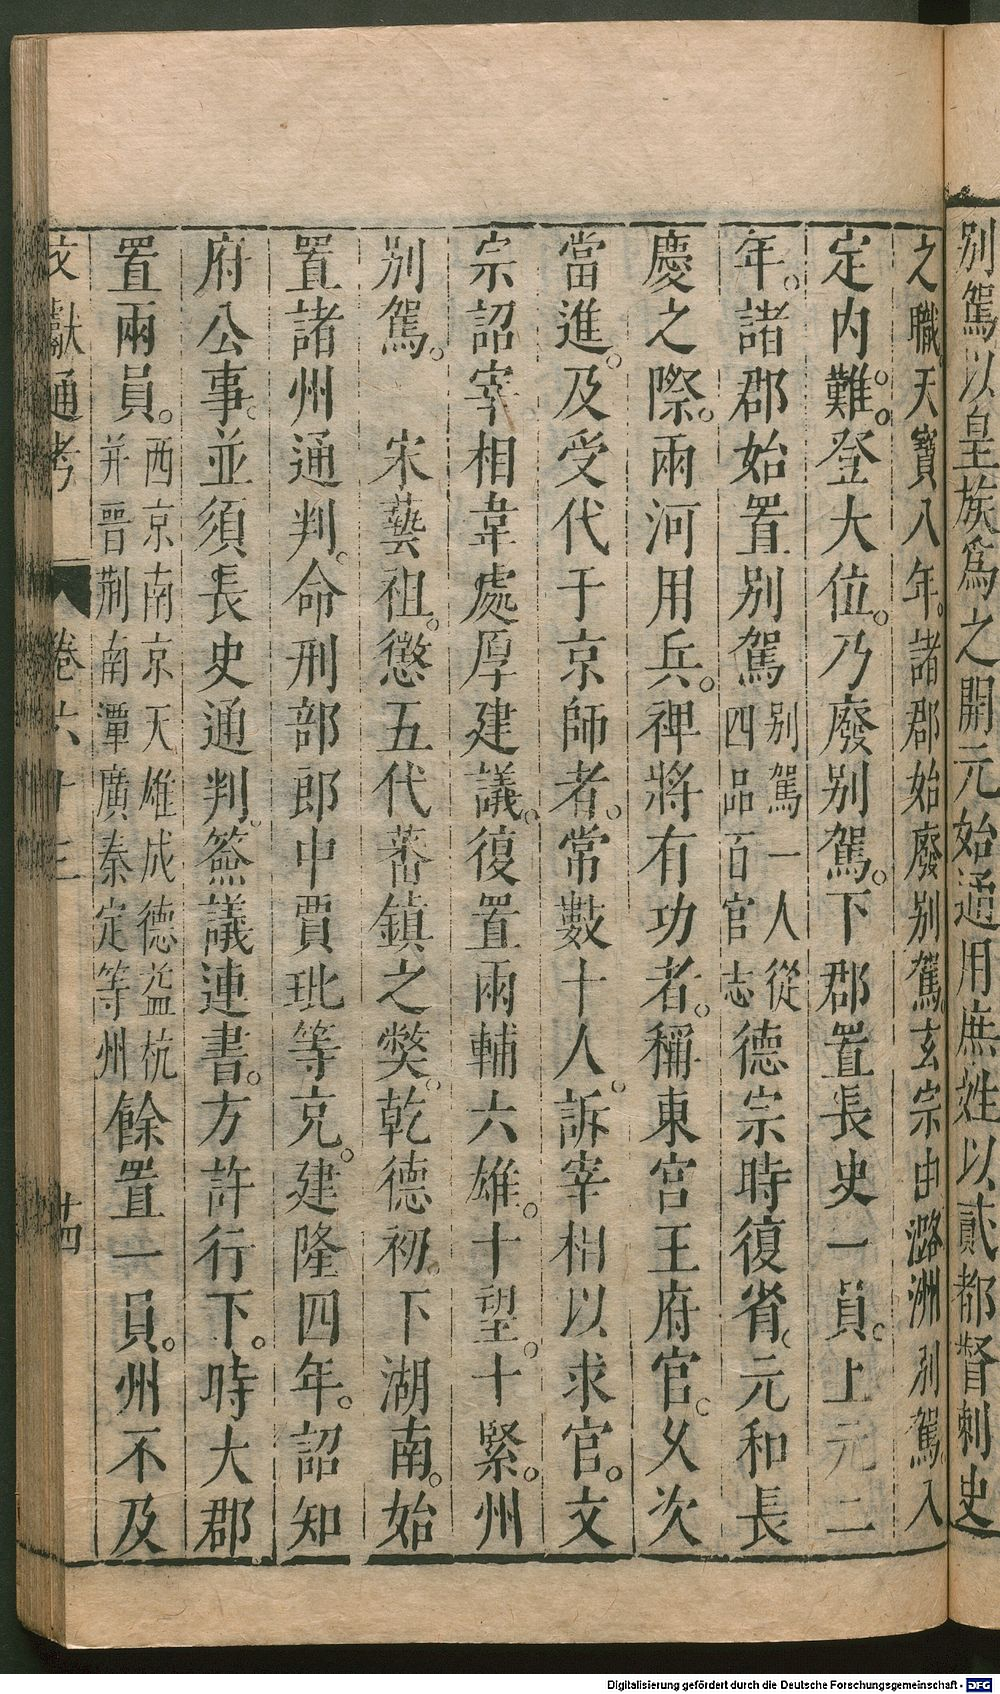 别駕以皇族爲之開元始通用庶姓以貳都督刺史
之職天寶八年。諸郡始廢别駕。玄宗由潞洲别駕。入
定内難。登大位。乃廢别駕。下郡置長史一員。上元二
年。諸郡始置别駕
别駕一人從
四品百官志
德宗時復省。元和長
慶之際。兩河用兵。禆將有功者。稱東宫王府官。久次
當進。及受代于京師者。常數十人。訴宰相以求官。文
宗詔宰相韋處厚建議。復置兩輔六雄。十望。十緊。州
别駕。 宋藝祖。懲五代蕃鎮之獘。乾德初。下湖南。始
置諸州通判。命刑部郎中賈玭等充。建隆四年。詔知
府公事。並須長史通判。簽議連書。方許行下。時大郡
置兩員。
西京南京天雄成德益杭
并晉荆南潭廣秦定等州
餘置一員。州不及
文獻通考 卷六十三 十四
Digitalisierung gefördert durch die Deutsche Forschungsgemeinschaft - DFG